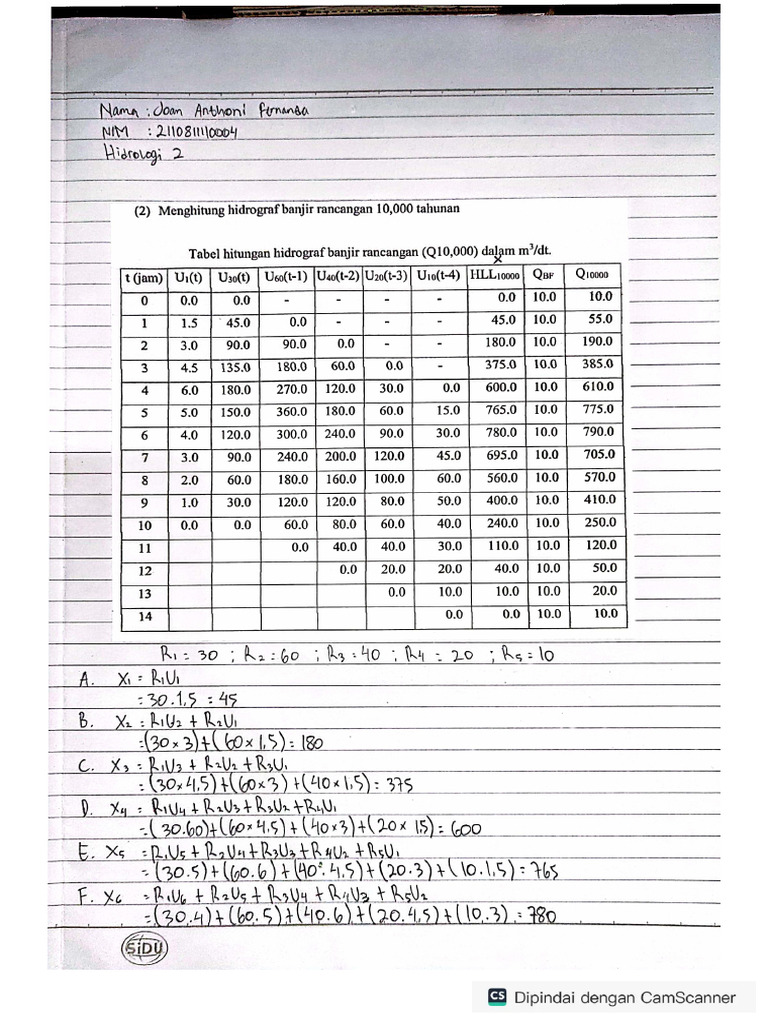 Nama : Joan Anthoni Fernanda
NIM : 2110811110004
Hidrologi 2
(2) Menghitung hidrograf banjir rancangan 10,000 tahunan
Tabel hitungan hidrograf banjir rancangan (Q10,000) dalam m³/dt.
x
t (jam) U₁(t) U₃₀(t) U₆₀(t-1) U₄₀(t-2) U₂₀(t-3) U₁₀(t-4) HLL₁₀₀₀₀ QBF Q₁₀₀₀₀
0 0.0 0.0 - - - - 0.0 10.0 10.0
1 1.5 45.0 0.0 - - - 45.0 10.0 55.0
2 3.0 90.0 90.0 0.0 - - 180.0 10.0 190.0
3 4.5 135.0 180.0 60.0 0.0 - 375.0 10.0 385.0
4 6.0 180.0 270.0 120.0 30.0 0.0 600.0 10.0 610.0
5 5.0 150.0 360.0 180.0 60.0 15.0 765.0 10.0 775.0
6 4.0 120.0 300.0 240.0 90.0 30.0 780.0 10.0 790.0
7 3.0 90.0 240.0 200.0 120.0 45.0 695.0 10.0 705.0
8 2.0 60.0 180.0 160.0 100.0 60.0 560.0 10.0 570.0
9 1.0 30.0 120.0 120.0 80.0 50.0 400.0 10.0 410.0
10 0.0 0.0 60.0 80.0 60.0 40.0 240.0 10.0 250.0
11 0.0 40.0 40.0 30.0 110.0 10.0 120.0
12 0.0 20.0 20.0 40.0 10.0 50.0
13 0.0 10.0 10.0 10.0 20.0
14 0.0 0.0 10.0 10.0
R₁ = 30 ; R₂ = 60 ; R₃ = 40 ; R₄ = 20 ; R₅ = 10
A. X₁ = R₁U₁
= 30 . 1,5 = 45
B. X₂ = R₁U₂ + R₂U₁
= (30 × 3) + (60 × 1,5) = 180
C. X₃ = R₁U₃ + R₂U₂ + R₃U₁
= (30×4,5) + (60×3) + (40×1,5) = 375
D. X₄ = R₁U₄ + R₂U₃ + R₃U₂ + R₄U₁
= (30.60) + (60×4,5) + (40×3) + (20× 15) = 600
E. X₅ = R₁U₅ + R₂U₄ + R₃U₃ + R₄U₂ + R₅U₁
= (30.5) + (60.6) + (40.4,5) + (20.3) + (10.1,5) = 765
F. X₆ = R₁U₆ + R₂U₅ + R₃U₄ + R₄U₃ + R₅U₂
= (30.4) + (60.5) + (40.6) + (20.4,5) + (10.3) = 780
SiDU
CS Dipindai dengan CamScanner